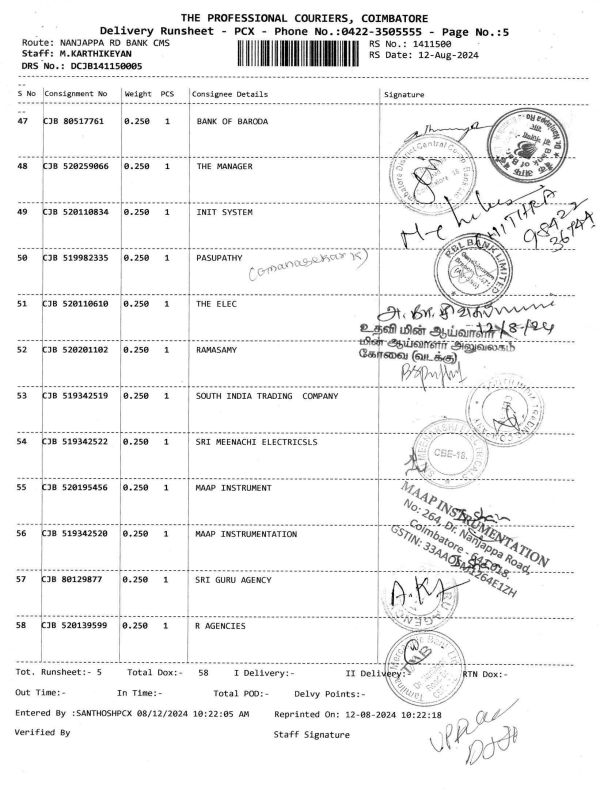 THE PROFESSIONAL COURIERS, COIMBATORE
Delivery Runsheet - PCX - Phone No.:0422-3505555 - Page No.:5
Route: NANJAPPA RD BANK CMS RS No.: 1411500
Staff: M.KARTHIKEYAN RS Date: 12-Aug-2024
DRS No.: DCJB141150005
S No Consignment No Weight PCS Consignee Details Signature
47 CJB 80517761 0.250 1 BANK OF BARODA
48 CJB 520259066 0.250 1 THE MANAGER
49 CJB 520110834 0.250 1 INIT SYSTEM
CHITHRA
98422
36944
50 CJB 519982335 0.250 1 PASUPATHY
RBL BANK LIMITED
51 CJB 520110610 0.250 1 THE ELEC
12/8/24
உதவி மின் ஆய்வாளர்
52 CJB 520201102 0.250 1 RAMASAMY
மின் ஆய்வாளர் அலுவலகம்
கோவை (வடக்கு)
53 CJB 519342519 0.250 1 SOUTH INDIA TRADING COMPANY
54 CJB 519342522 0.250 1 SRI MEENACHI ELECTRICSLS
CBE-18.
55 CJB 520195456 0.250 1 MAAP INSTRUMENT
MAAP INSTRUMENTATION
No: 264, Dr. Nanjappa Road,
Coimbatore - 641 018.
56 CJB 519342520 0.250 1 MAAP INSTRUMENTATION
57 CJB 80129877 0.250 1 SRI GURU AGENCY
58 CJB 520139599 0.250 1 R AGENCIES
Tot. Runsheet:- 5 Total Dox:- 58 I Delivery:- II Delivery:- RTN Dox:-
Out Time:- In Time:- Total POD:- Delvy Points:-
Entered By :SANTHOSHPCX 08/12/2024 10:22:05 AM Reprinted On: 12-08-2024 10:22:18
Verified By Staff Signature